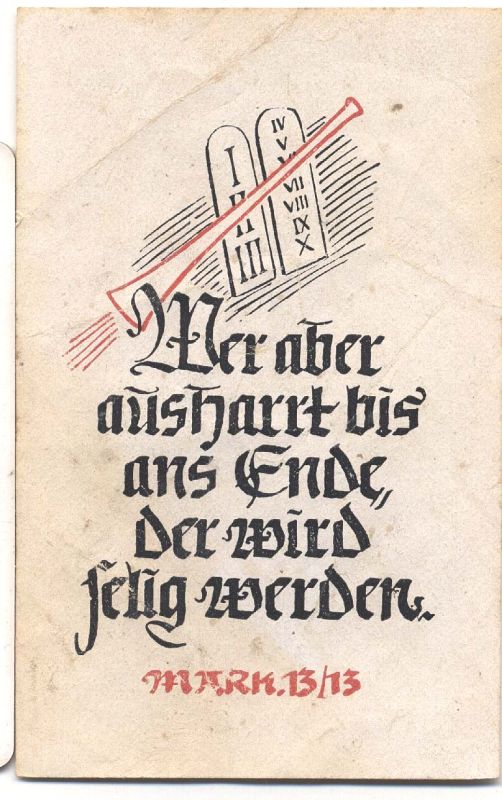 I
II
III
IV
V
VI
VII
VIII
IX
X
Wer aber
ausharrt bis
ans Ende,
der wird
selig werden.
MARK. 13/13